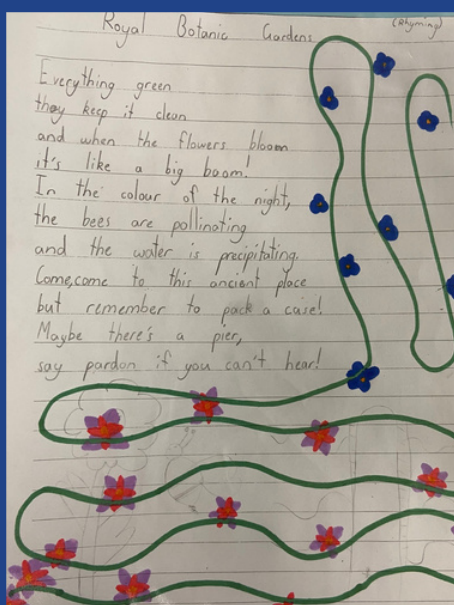 Royal Botanic Gardens
(Rhyming)
Everything green
they keep it clean
and when the flowers bloom
it's like a big boom!
In the colour of the night,
the bees are pollinating
and the water is precipitating.
Come,come to this ancient place
but remember to pack a case!
Maybe there's a pier,
say pardon if you can't hear!